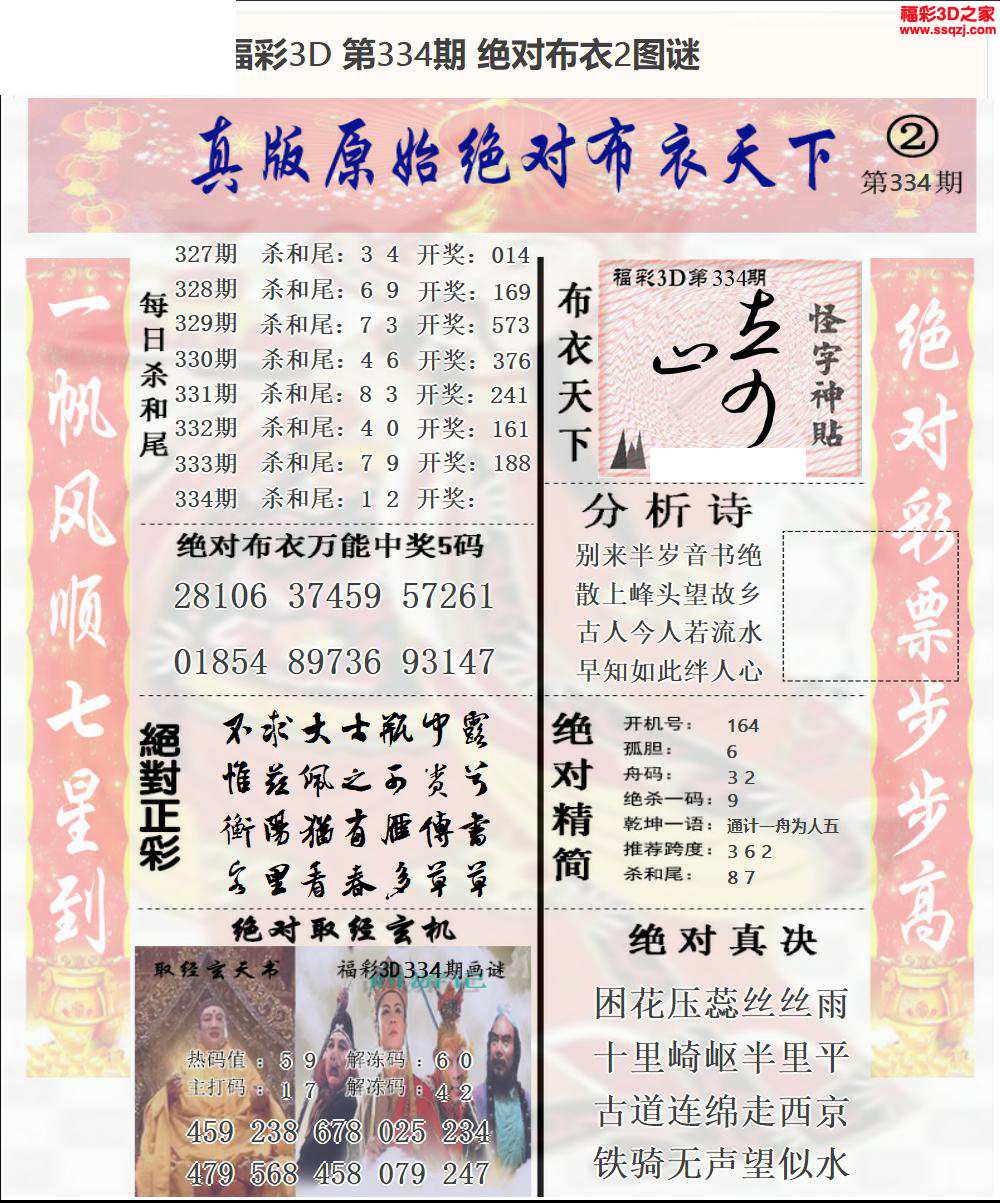 福彩3D之家
www.ssqzj.com
福彩3D 第334期 绝对布衣2图谜
真版原始绝对布衣天下
②
第334期
一帆风顺七星到
每日杀和尾
327期 杀和尾：3 4 开奖：014
328期 杀和尾：6 9 开奖：169
329期 杀和尾：7 3 开奖：573
330期 杀和尾：4 6 开奖：376
331期 杀和尾：8 3 开奖：241
332期 杀和尾：4 0 开奖：161
333期 杀和尾：7 9 开奖：188
334期 杀和尾：1 2 开奖：
绝对布衣万能中奖5码
28106 37459 57261
01854 89736 93147
絕對正彩
不求大士瓶中露
惟兹佩之不贵兮
衡阳犹有雁傳書
客里青春多草草
绝对取经玄机
取经玄天书
福彩3D334期画谜
热码值：5 9 解冻码：6 0
主打码：1 7 解冻码：4 2
459 238 678 025 234
479 568 458 079 247
布衣天下
福彩3D第334期
怪字神貼
分析诗
别来半岁音书绝
散上峰头望故乡
古人今人若流水
早知如此绊人心
绝对精简
开机号：164
孤胆：6
舟码：3 2
绝杀一码：9
乾坤一语：通计一舟为人五
推荐跨度：3 6 2
杀和尾：8 7
绝对真决
困花压蕊丝丝雨
十里崎岖半里平
古道连绵走西京
铁骑无声望似水
绝对彩票步步高